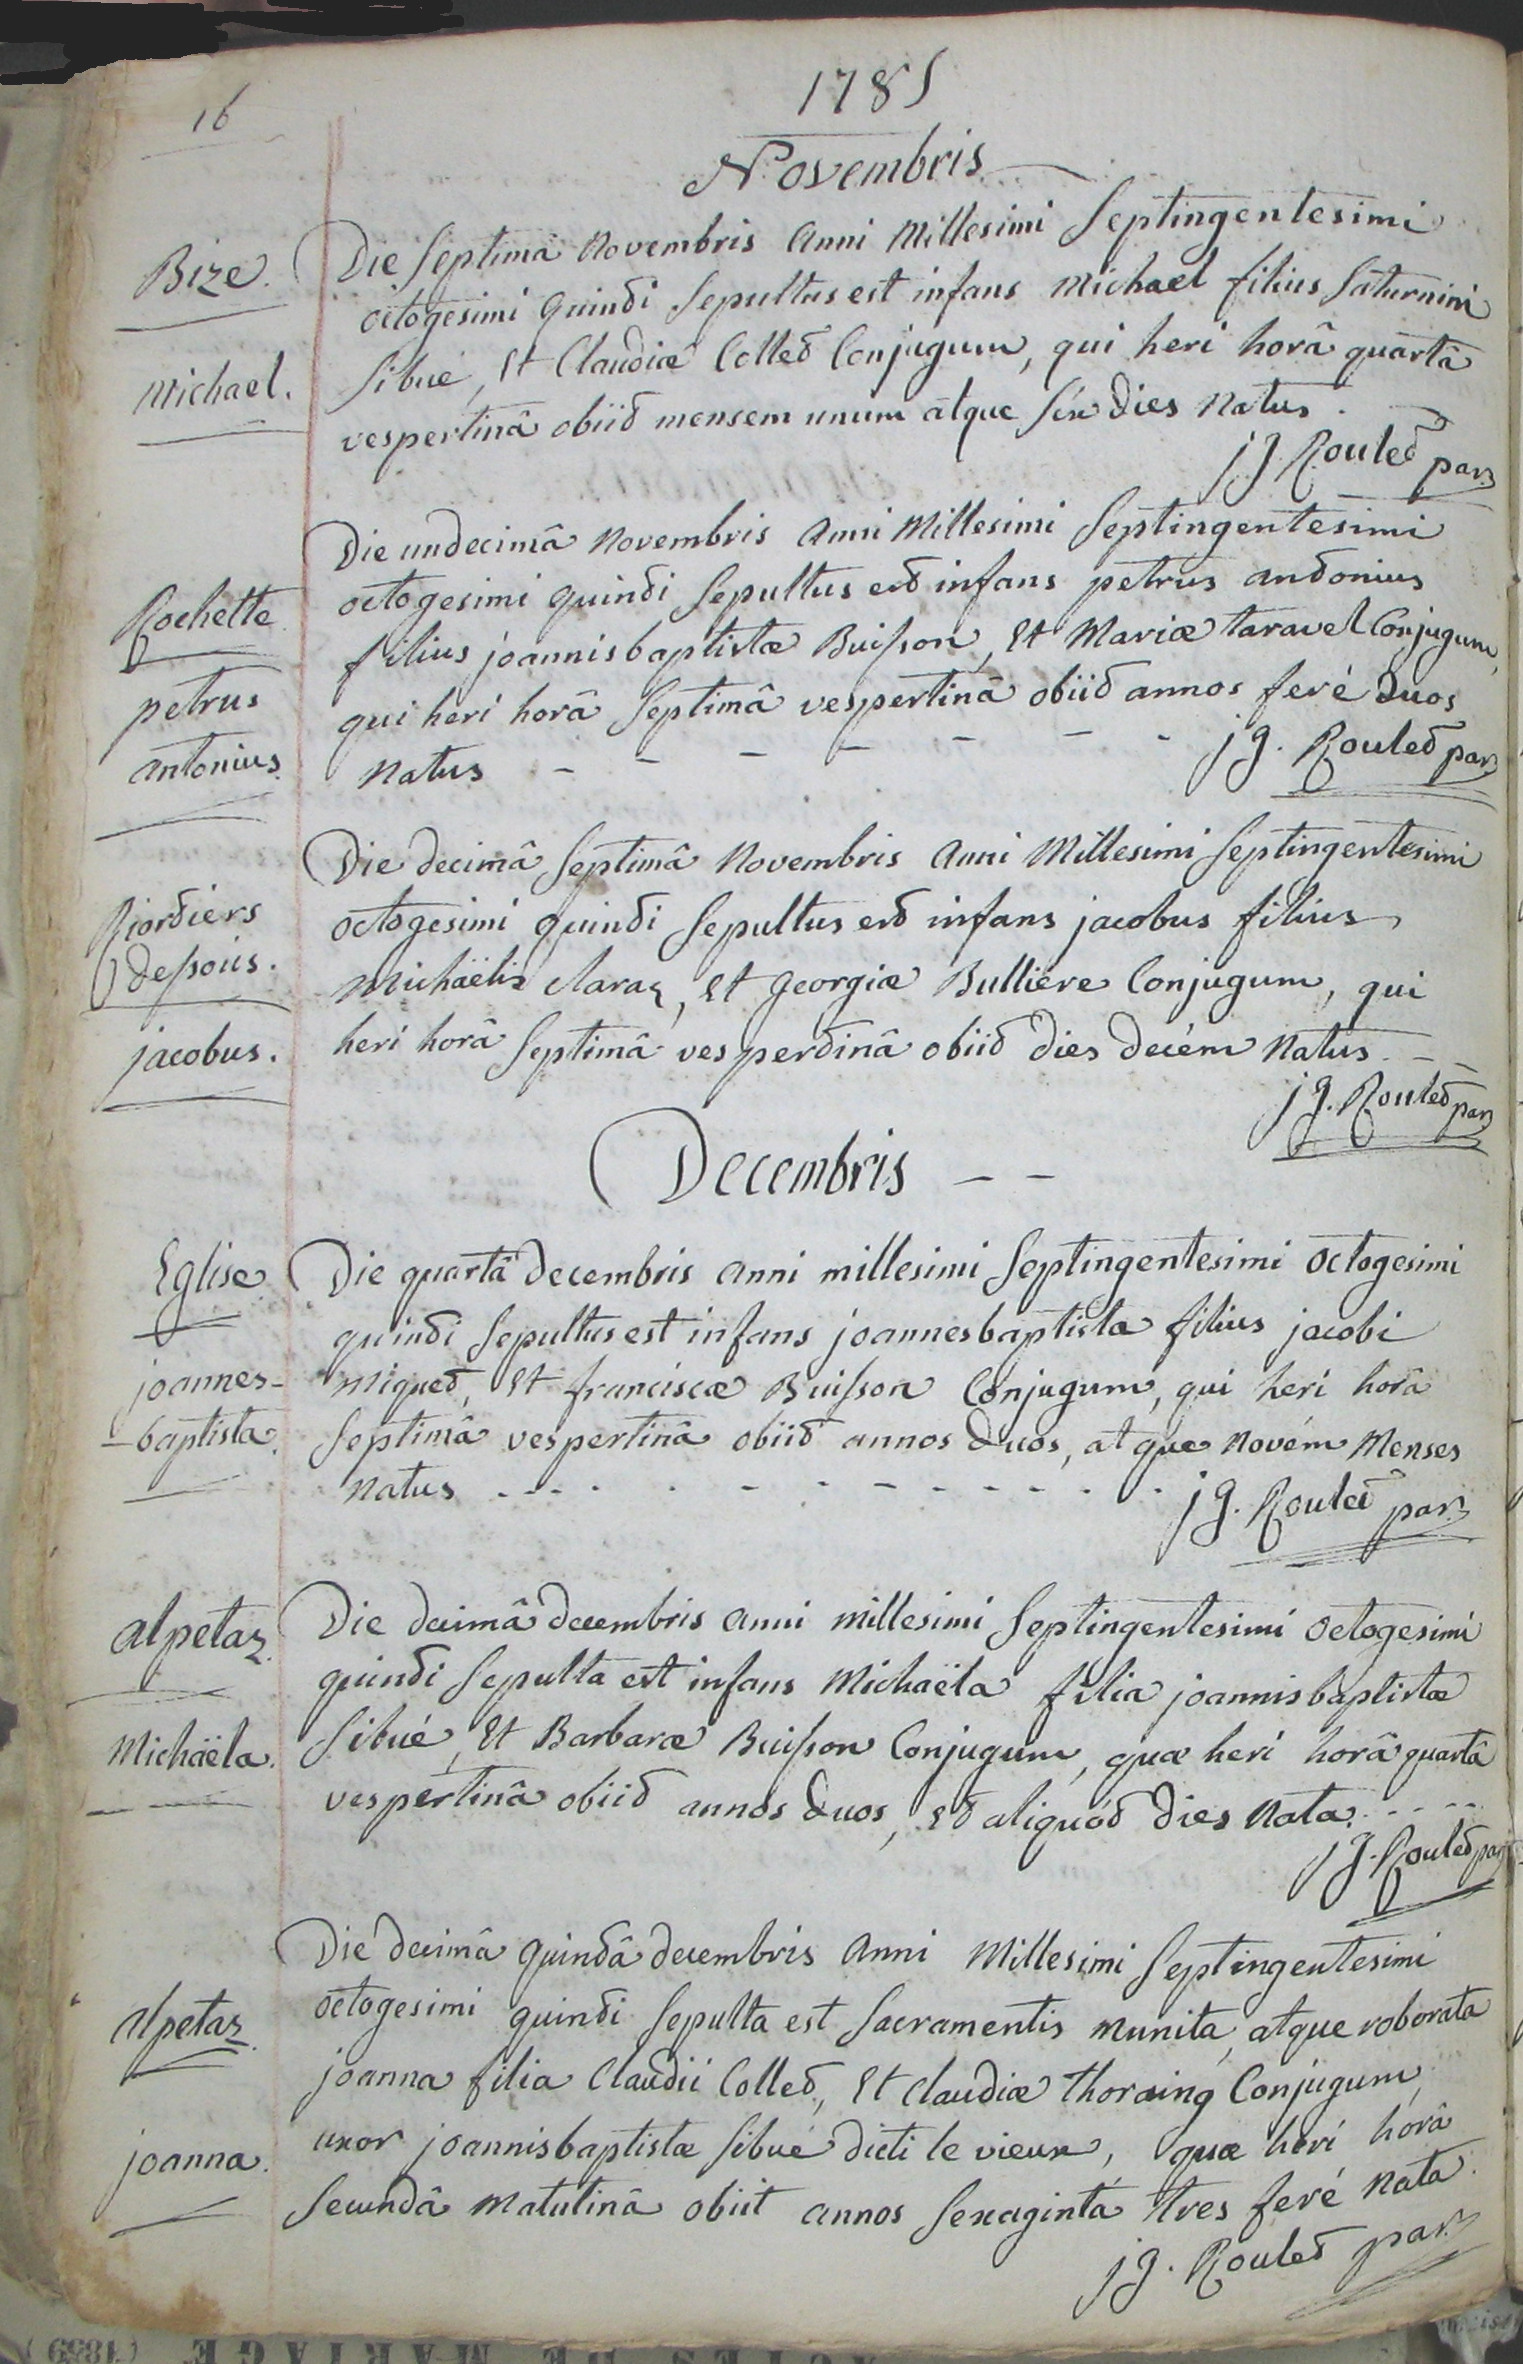 16
1785
Novembris
Bize.
Michael.
Die Septimâ Novembris Anni Millesimi Septingentesimi
octogesimi quinti Sepultus est infans Michael filius Saturnini
Sibué, Et Claudiæ Collet Conjugum, qui heri horâ quartâ
vespertinâ obiit mensem unum atque sex dies Natus.
j g. Roulet par
Rochette
petrus
antonius
Die undecimâ Novembris Anni Millesimi Septingentesimi
octogesimi quinti Sepultus est infans petrus antonius
filius joannisbaptistæ Buisson, Et Mariæ taravel Conjugum,
qui heri horâ Septimâ vespertinâ obiit annos feré duos
Natus - - - - - -
j g. Roulet par
dessous.
jacobus.
Die decimâ Septimâ Novembris Anni Millesimi Septingentesimi
octogesimi quinti Sepultus est infans jacobus filius
Michäelis claraz, Et georgiæ Bulliere Conjugum, qui
heri horâ Septimâ vespertinâ obiit dies decém Natus. - -
j g. Roulet par
Decembris - -
Eglise
joannes-
-baptista.
Die quartâ decembris anni millesimi Septingentesimi octogesimi
quinti Sepultus est infans joannesbaptista filius jacobi
Miquet, Et franciscæ Buisson Conjugum, qui heri horâ
Septimâ vespertinâ obiit annos duos, atque novém Menses
Natus - - - - - - - - -
j g. Roulet par
alpetaz
Michäela.
Die decimâ decembris anni millesimi Septingentesimi octogesimi
quinti Sepulta est infans Michaëla filia joannisbaptistæ
Sibué, Et Barbaræ Buisson Conjugum, quæ heri horâ quartâ
vespertinâ obiit annos duos, Et aliquót dies Nata. - - - -
j g. Roulet par
alpetaz.
joanna.
Die decimâ quintâ decembris Anni Millesimi Septingentesimi
octogesimi quinti Sepulta est Sacramentis munita, atque roborata
joanna filia Claudii Collet, Et claudiæ thoraing Conjugum,
uxor joannisbaptistæ Sibué dicti le vieux, quæ heri horâ
Secundâ Matutinâ obiit annos Sexagintá tres feré Nata.
j g. Roulet par
ACTES DE MARIAGE (1839)